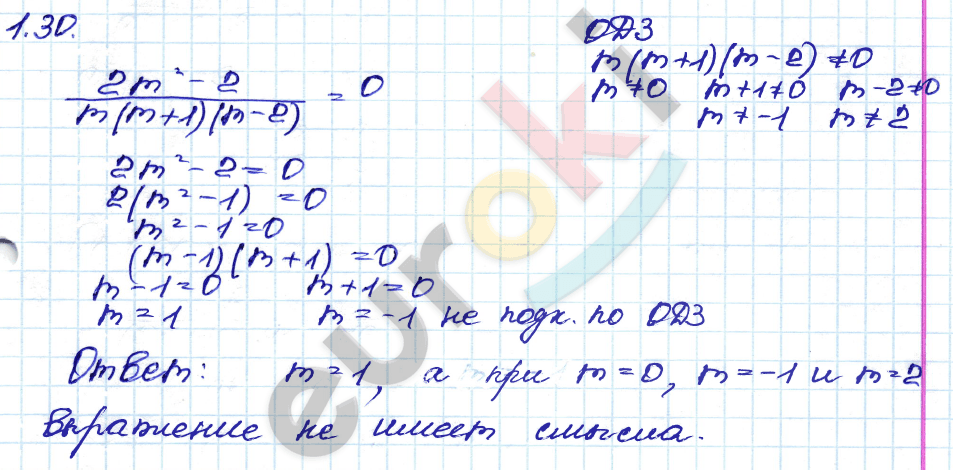 1.30.
ОДЗ
m(m+1)(m-2)≠0
m≠0 m+1≠0 m-2≠0
m≠-1 m≠2
2m²-2
/ m(m+1)(m-2) = 0
2m²-2=0
2(m²-1)=0
m²-1=0
(m-1)(m+1)=0
m-1=0 m+1=0
m=1 m=-1 не подх. по ОДЗ
Ответ: m=1, а при m=0, m=-1 и m=2
выражение не имеет смысла.
euroki